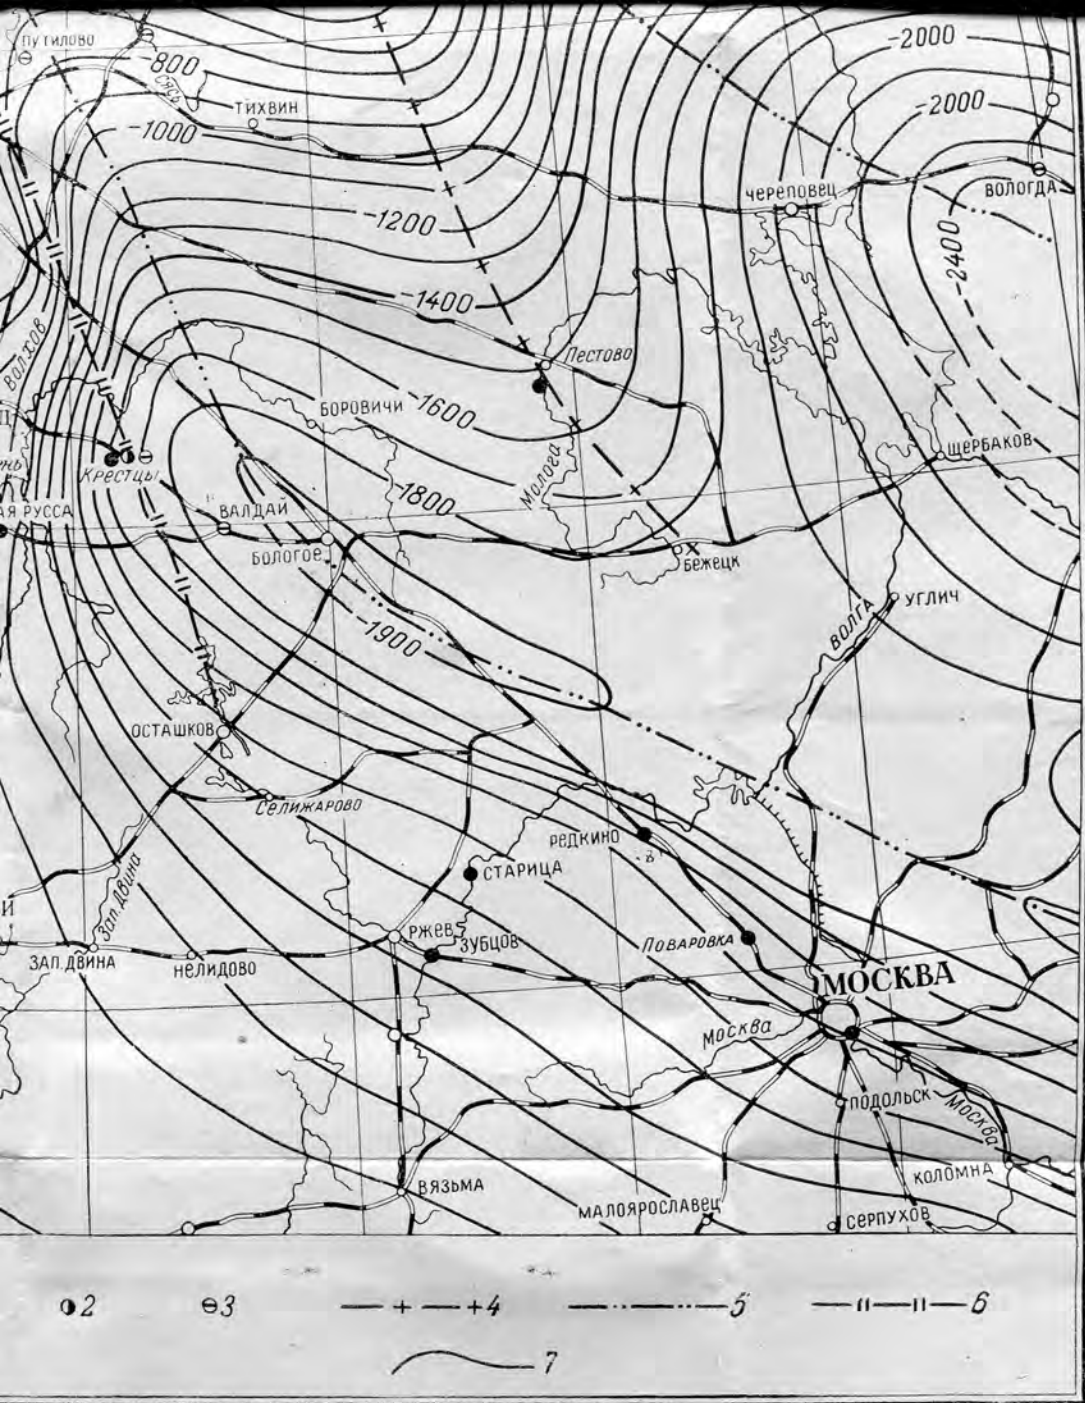 ПУТИЛОВО
-2000
-800
СЯСЬ
ТИХВИН
-2000
-1000
ЧЕРЕПОВЕЦ
ВОЛОГДА
-1200
-2400
-1400
ВОЛХОВ
Пестово
-1600
БОРОВИЧИ
ЩЕРБАКОВ
Крестцы
Молога
-1800
АЯ РУССА
ВАЛДАЙ
БОЛОГОЕ
БЕЖЕЦК
УГЛИЧ
ВОЛГА
-1900
ОСТАШКОВ
СЕЛИЖАРОВО
РЕДКИНО
СТАРИЦА
Зап. Двина
РЖЕВ
ЗУБЦОВ
ПОВАРОВКА
ЗАП. ДВИНА
НЕЛИДОВО
МОСКВА
Москва
ПОДОЛЬСК
Москва
КОЛОМНА
ВЯЗЬМА
МАЛОЯРОСЛАВЕЦ
СЕРПУХОВ
2
3
4
5
6
7